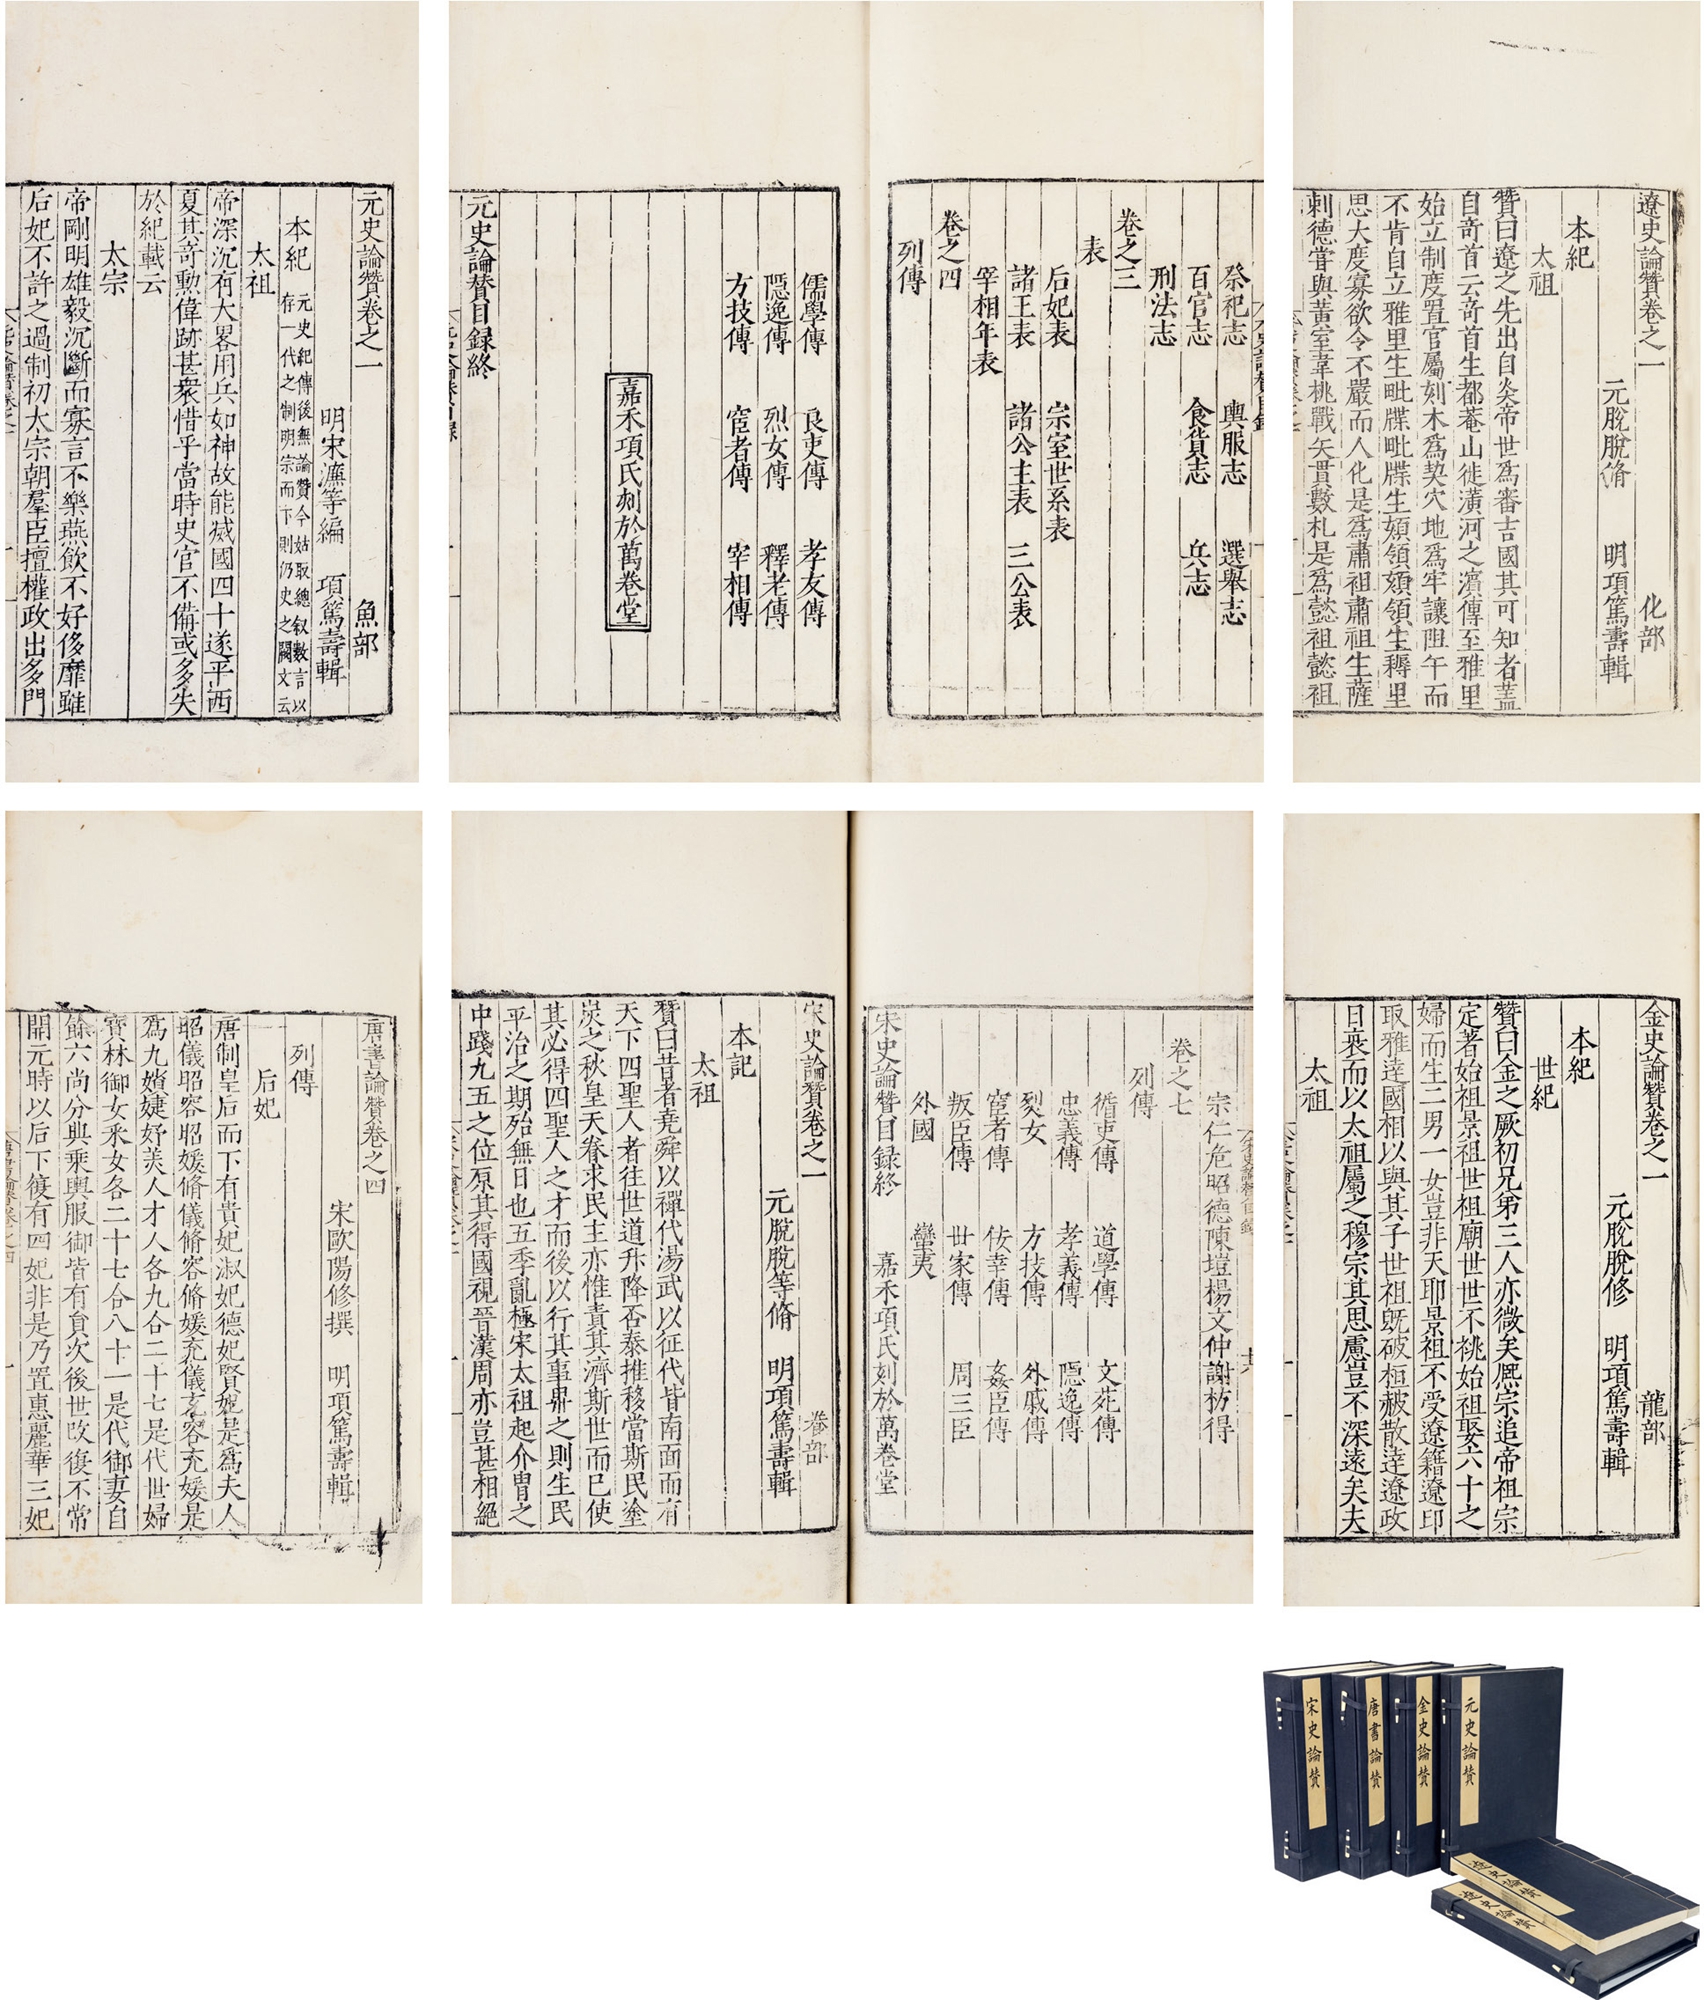 元史論贊卷之一　魚部
明宋濂等編　項篤壽輯
本紀　元史紀傳後無論贊今姑取總叙數言以
存一代之制明宗而下則仍史之闕文云
太祖
帝深沉有大畧用兵如神故能滅國四十遂平西
夏其奇勳偉跡甚衆惜乎當時史官不備或多失
於紀載云
太宗
帝剛明雄毅沉斷而寡言不樂燕飲不好侈靡雖
后妃不許之過制初太宗朝羣臣擅權政出多門
祭祀志　輿服志　選舉志
百官志　食貨志　兵志
刑法志
卷之三
表
后妃表　宗室世系表
諸王表　諸公主表　三公表
宰相年表
卷之四
列傳
儒學傳　良吏傳　孝友傳
隱逸傳　烈女傳　釋老傳
方技傳　宦者傳　宰相傳
嘉禾項氏刻於萬卷堂
元史論贊目録終
遼史論贊卷之一　化部
元脫脫脩　明項篤壽輯
本紀
太祖
贊曰遼之先出自炎帝世爲審吉國其可知者蓋
自奇首云奇首生都菴山徙潢河之濵傳至雅里
始立制度置官屬刻木爲契穴地爲牢讓阻午而
不肯自立雅里生毗牒毗牒生頦領頦領生耨里
思大度寡欲令不嚴而人化是爲肅祖肅祖生薩
剌德嘗與黃室韋桃戰矢貫數札是爲懿祖懿祖
唐書論贊卷之四
宋歐陽修撰　明項篤壽輯
列傳
后妃
唐制皇后而下有貴妃淑妃德妃賢妃是爲夫人
昭儀昭容昭媛脩儀脩容脩媛充儀充容充媛是
爲九嬪婕妤美人才人各九合二十七是代世婦
寶林御女采女各二十七合八十一是代御妻自
餘六尚分典乘輿服御皆有員次後世改復不常
開元時以后下復有四妃非是乃置惠麗華三妃
宗仁危昭德陳塏楊文仲謝枋得
卷之七
列傳
循吏傳　道學傳　文苑傳
忠義傳　孝義傳　隱逸傳
列女　方技傳　外戚傳
宦者傳　佞幸傳　姦臣傳
叛臣傳　世家傳　周三臣
外國　蠻夷
宋史論贊目録終　嘉禾項氏刻於萬卷堂
宋史論贊卷之一
元脫脫等脩　明項篤壽輯
本記
太祖
贊曰昔者堯舜以禪代湯武以征代皆南面而有
天下四聖人者往世道升降否泰推移當斯民塗
炭之秋皇天眷求民主亦惟責其濟斯世而已使
其必得四聖人之才而後以行其事畀之則生民
平治之期殆無日也五季亂極宋太祖起介胄之
中踐九五之位原其得國視晉漢周亦豈甚相絕
金史論贊卷之一　龍部
元脫脫修　明項篤壽輯
本紀
世紀
贊曰金之厥初兄弟三人亦微矣熈宗追帝祖宗
定著始祖景祖世祖廟世世不祧始祖娶六十之
婦而生二男一女豈非天耶景祖不受遼籍遼印
取雅達國相以與其子世祖既破桓赧散達遼政
日衰而以太祖屬之穆宗其思慮豈不深遠矣夫
太祖
宋史論贊
唐書論贊
金史論贊
元史論贊
遼史論贊
遼史論贊